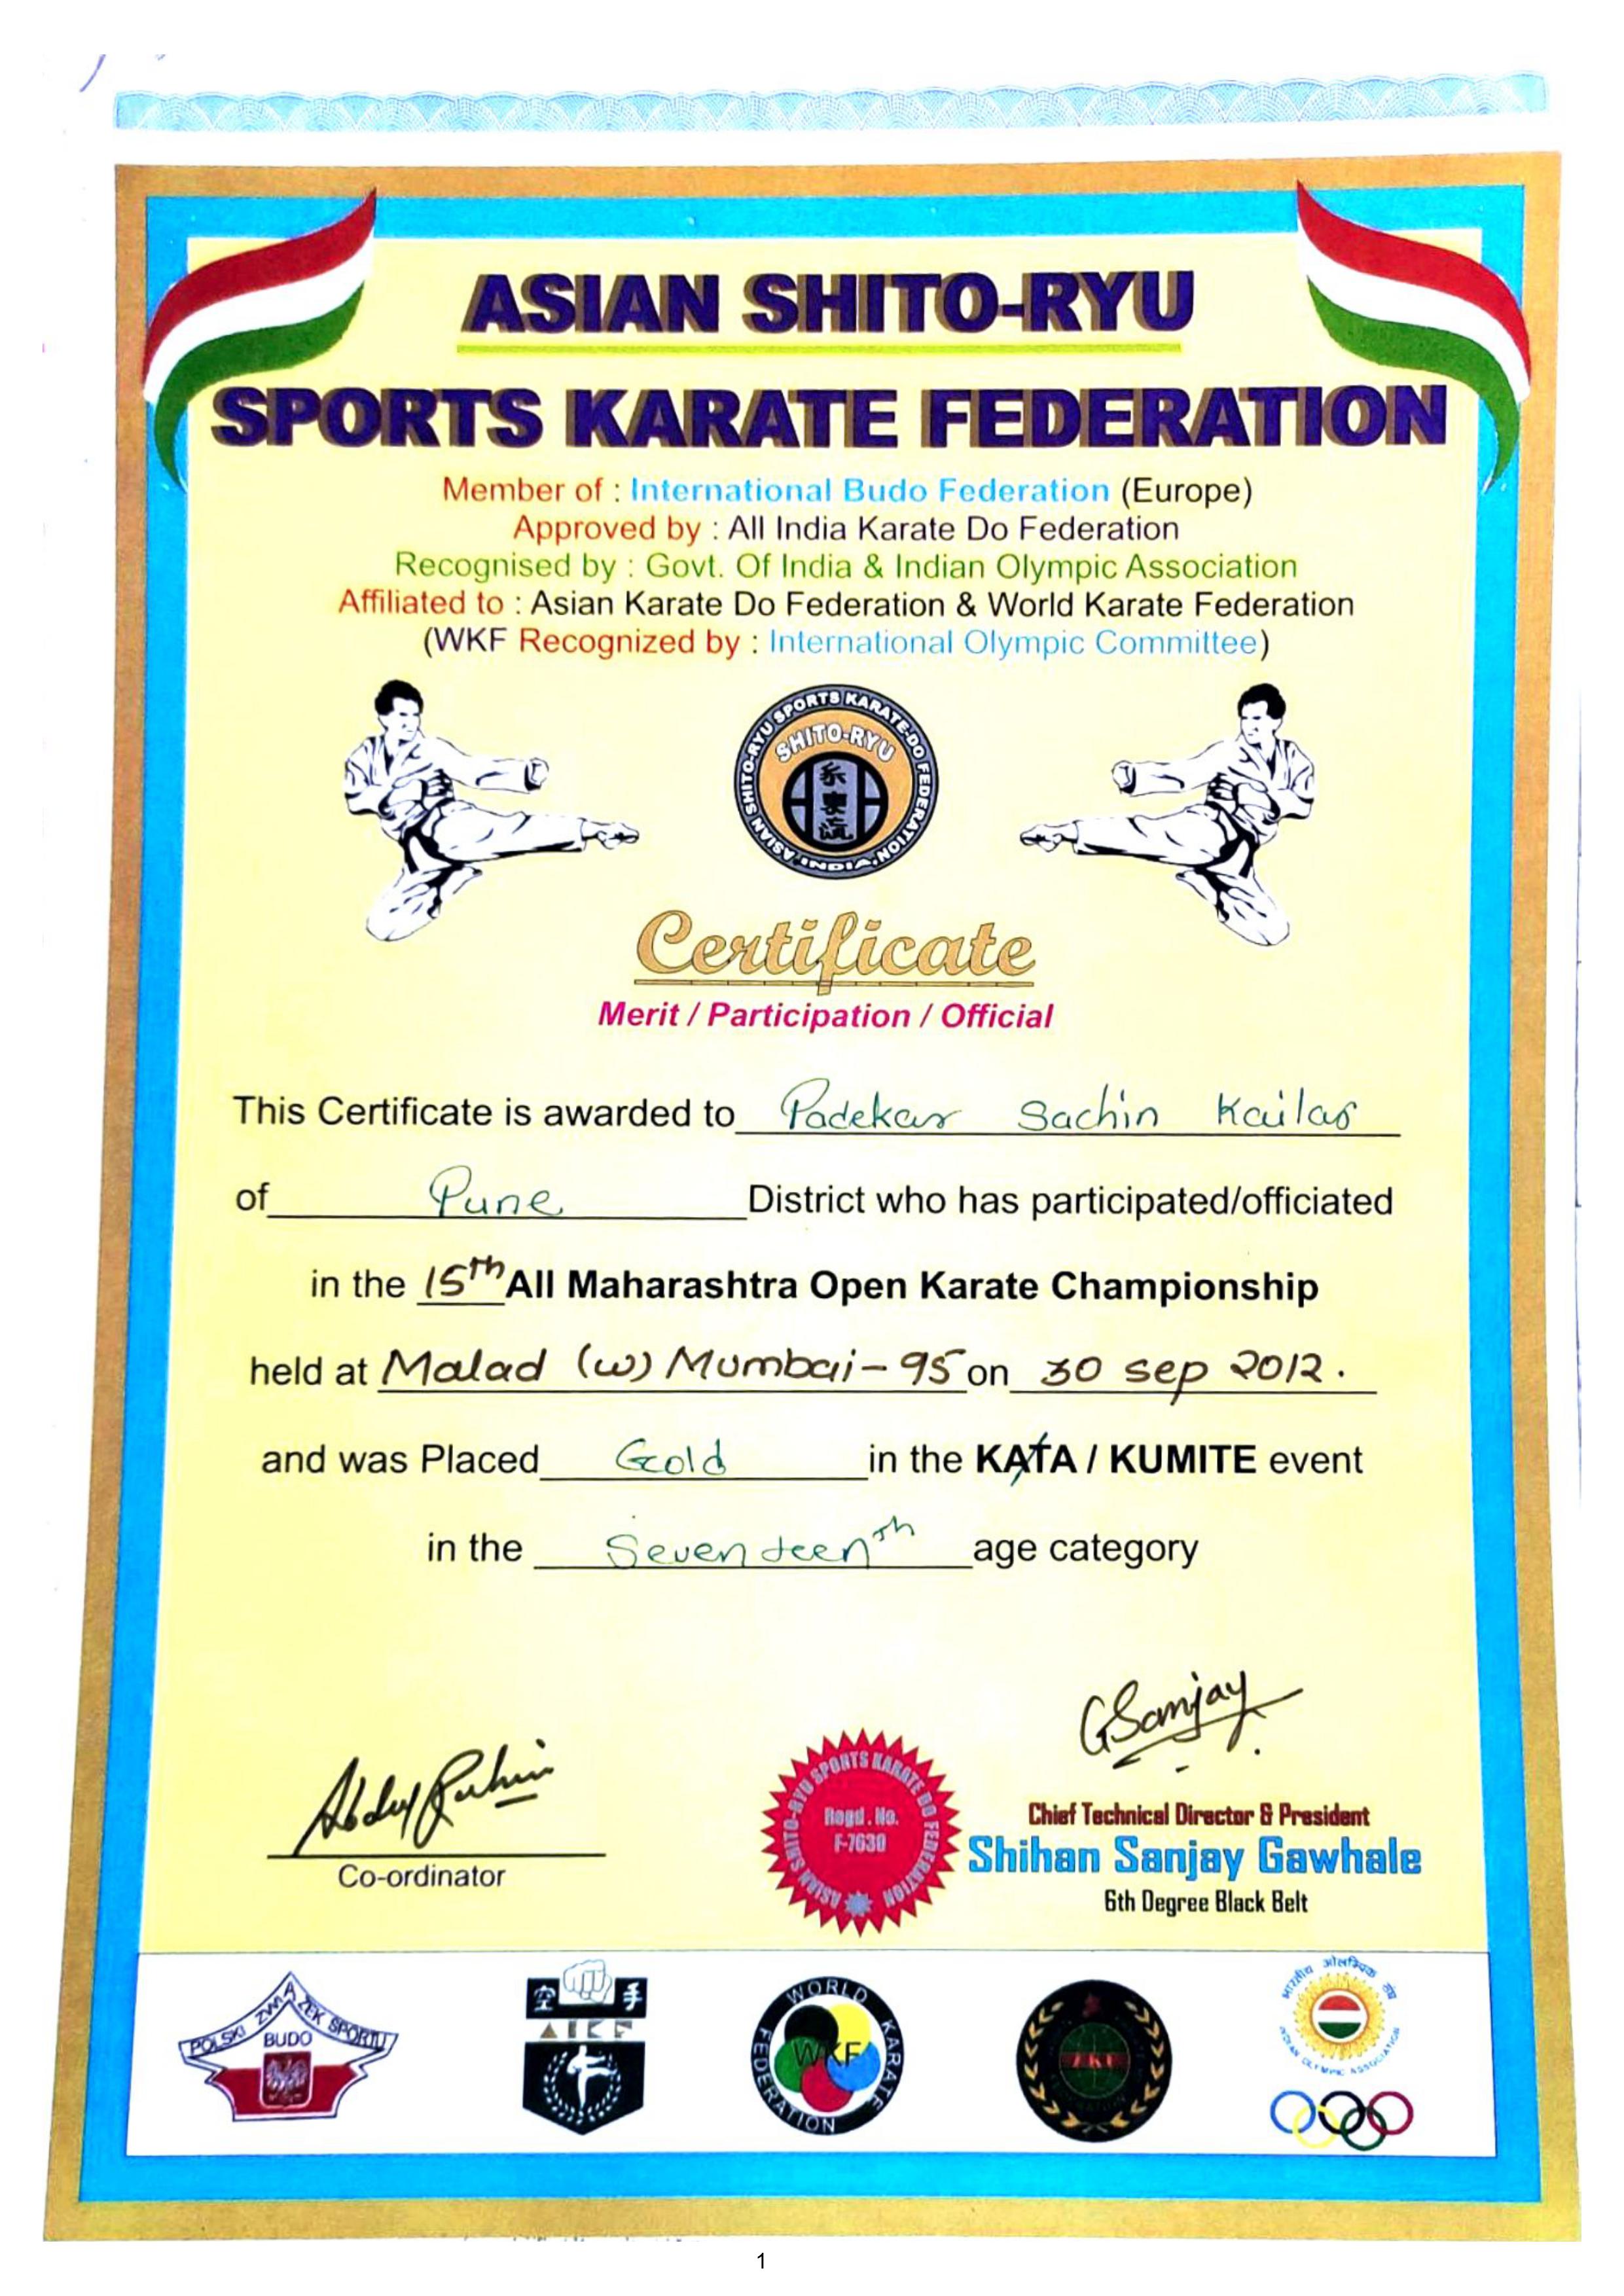 ASIAN SHITO-RYU
SPORTS KARATE FEDERATION
Member of : International Budo Federation (Europe)
Approved by : All India Karate Do Federation
Recognised by : Govt. Of India & Indian Olympic Association
Affiliated to : Asian Karate Do Federation & World Karate Federation
(WKF Recognized by : International Olympic Committee)
ASIAN SHITO-RYU SPORTS KARATE-DO FEDERATION, INDIA.
SHITO-RYU
糸
東
流
Certificate
Merit / Participation / Official
This Certificate is awarded to Padekar Sachin Kailas
of Pune District who has participated/officiated
in the 15th All Maharashtra Open Karate Championship
held at Malad (w) Mumbai-95 on 30 sep 2012.
and was Placed Gold in the KATA / KUMITE event
in the Seventeenth age category
GSanjay
Co-ordinator
ASIAN SHITO-RYU SPORTS KARATE DO FEDERATION
Regd. No.
F-7630
Chief Technical Director & President
Shihan Sanjay Gawhale
6th Degree Black Belt
POLSKI ZWIĄZEK SPORTU
BUDO
空 手
AIKF
WORLD KARATE FEDERATION
WKF
भारतीय ओलंपिक संघ
INDIAN OLYMPIC ASSOCIATION
1